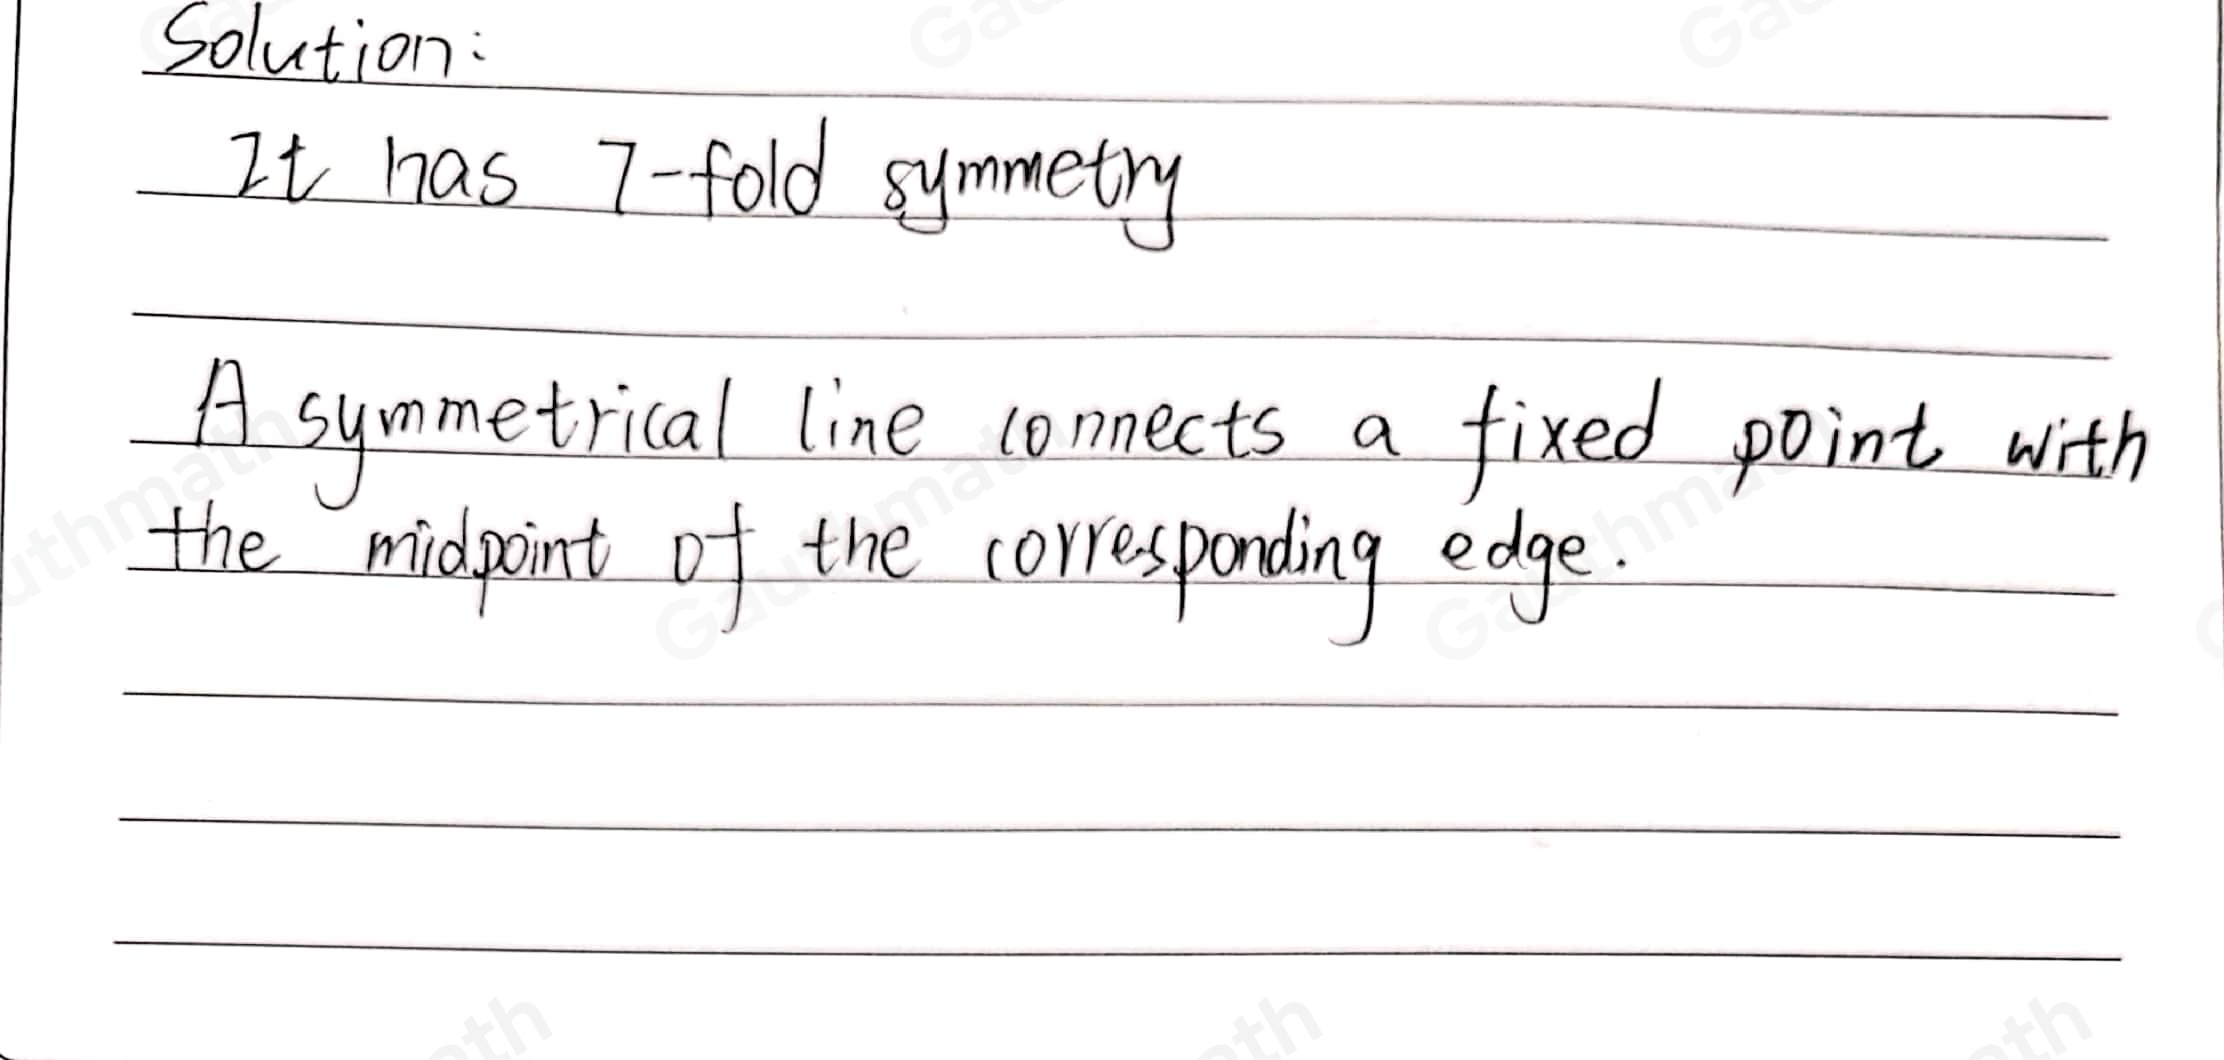 Solution:
It has 7-fold symmetry
A symmetrical line connects a fixed point with
the midpoint of the corresponding edge.